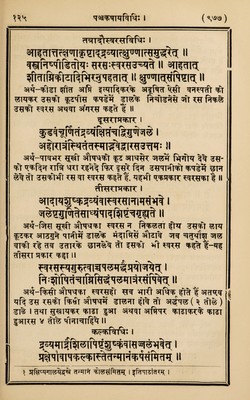 १२५ पञ्चकषायविधिः । (९७७)
तत्रादौस्वरसविधिः ।
आहतात्तत्क्षणाकृष्टाद्द्रव्यात्क्षुण्णात्समुद्धरेत् ॥
वस्त्रनिष्पीडितोयः सरसःस्वरसउच्यते ॥ आहतात्
शीताग्निकीटादिभिरनुपहतात् । क्षुण्णात्संपिष्टात् ॥
अर्थ-कीडा शीत अग्नि इत्यादिकरके अदूषित ऐसी वनस्पती को
लायकर उसको कूटपीस कपडेमें डालके निचोडनेसे जो रस निकले
उसको स्वरस अथवा अंगरस कहते हैं ॥
दूसराप्रकार ।
कुडवंचूर्णितंद्रव्यंक्षिप्तंचद्विगुणेजले ॥
अहोरात्रंस्थितंतस्माद्भवेद्वारसउत्तमः ॥
अर्थ-पावभार सूखी औषधको कूट आधसेर जलमें भिगोय देवे उस-
को एकदिन रात्रि धरा रहनेदे फिर दूसरे दिन उसपानीको कपडेमें छान
लेवे तो उसकोभी रस वा स्वरस कहते हैं. यहभी एकप्रकार स्वरसका है ॥
तीसराप्रकार ।
आदायशुष्कद्रव्यंवास्वरसानामसंभवे ।
जलेष्टगुणितेसाध्यंपादशिष्टंचगृह्यते ॥
अर्थ-जिस सूखी औषधका स्वरस न निकलता होय उसको लाय
कूटकर आठगुने पानीमें डालके मंदाग्निसे औटावे जब चतुर्थांश जल
बाकी रहे तब उतारके छानलेवे तो इसको भी स्वरस कहते हैं-यह
तीसरा प्रकार कहा ॥
स्वरसस्यगुरुत्वाच्चपलमर्द्धंप्रयोजयेत् ।
निःशोषितंचाग्निसिद्धंपलमात्रंरसंपिबेत् ॥
अर्थ-किसी औषधका स्वरसहो सब भारी अधिक होते हैं अतएव
यदि उस रसको किसी औषधमें डालना होवे तो अर्द्धपल ( २ तोले )
डाले । तथा सुखायकर काढा हुआ अथवा अग्निपर काढाकरके काढा
हुआरस ४ तोले पीनाचाहिये ॥
कल्कविधिः ।
द्रव्यमार्द्रंशिलापिष्टंशुष्कंवासजलंभवेत् ।
प्रक्षेपोवापकल्कास्तेतन्मानंकर्षसंमितम् ॥